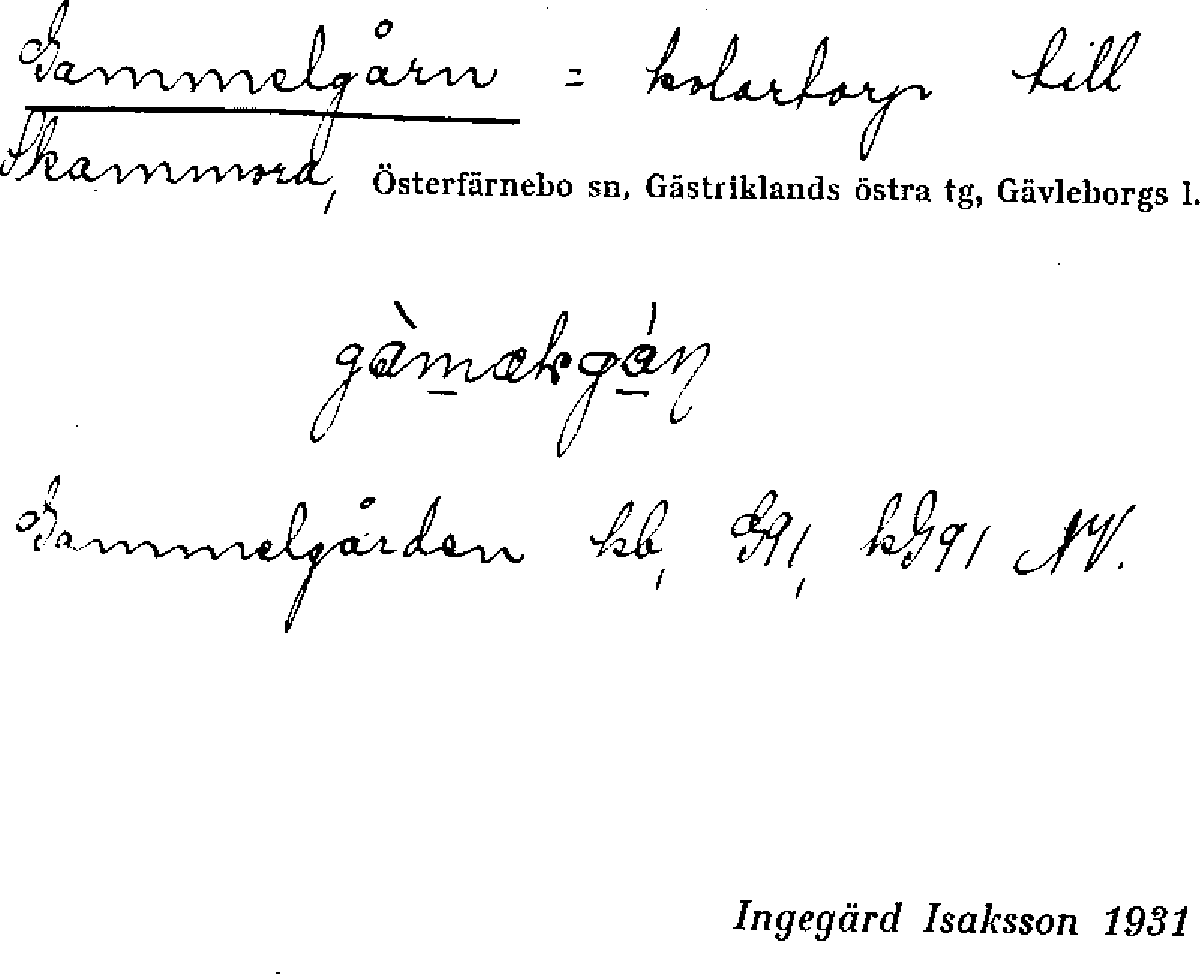 Gammelgårn = kolartorp till
Skammora, Österfärnebo sn, Gästriklands östra tg, Gävleborgs l.
Gammelgården kb, G91, kG91 NV.
Ingegärd Isaksson 1931